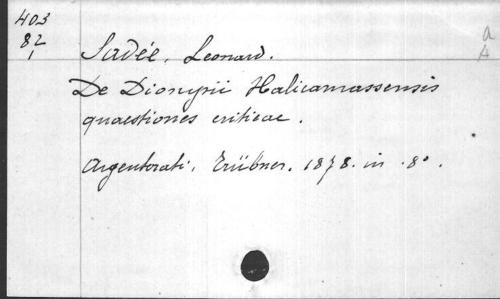 403
82
1
Sadée, Leonard.
a
A
De Dionysii Halicarnassensis
quaestiones criticae.
Argentorati, Trübner. 1878. in 8°.